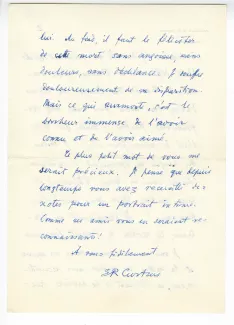 lui. De fait, il faut le féliciter
de cette mort sans angoisse, sans
douleurs, sans déchéance. Je souffre
douloureusement de sa disparition.
Mais ce qui surmonte, c'est le
bonheur immense de l'avoir
connu et de l'avoir aimé.
Le plus petit mot de vous me
serait précieux. Je pense que depuis
longtemps vous avez recueilli des
notes pour un portrait intime.
Comme ses amis vous en seraient re-
connaissants!
A vous fidèlement
ER Curtius